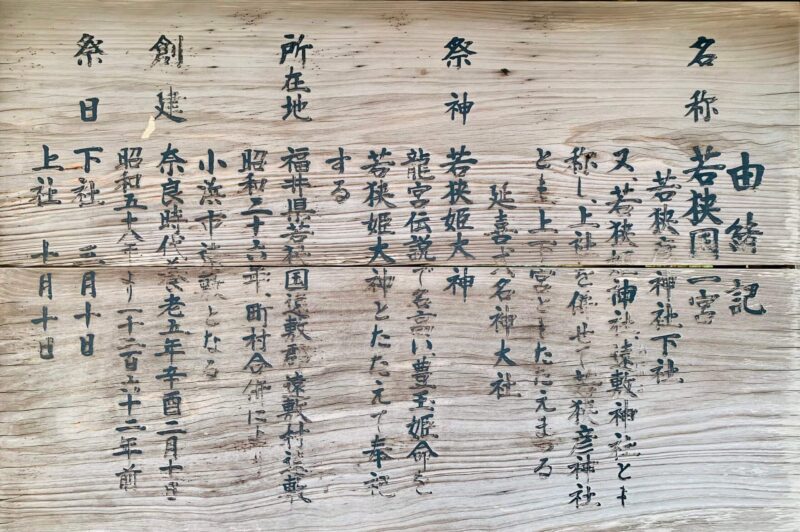 由緒記
名称 若狭国一宮
若狭彦神社下社
又、若狭姫神社、遠敷神社とも
称し、上社を併せて若狭彦神社
とも上下宮ともたたえまつる
延喜式名神大社
祭神 若狭姫大神
龍宮伝説で名高い豊玉姫命を
若狭姫大神とたたえて奉祀
する
所在地 福井県若狭国遠敷郡遠敷村遠敷
昭和二十六年、町村合併により
小浜市遠敷となる
創建 奈良時代養老五年辛酉二月十日
昭和五十八年より一千二百六十二年前
祭日 下社 三月十日
上社 十月十日